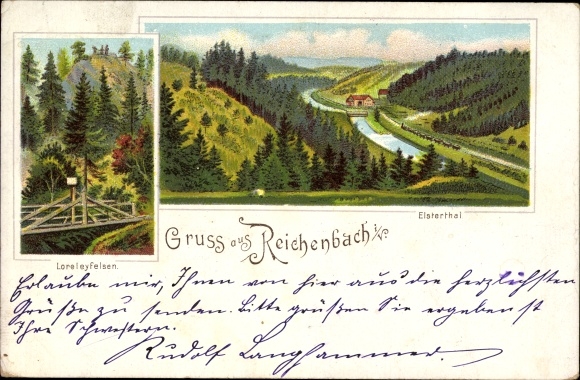 Elsterthal
Loreleyfelsen.
Gruss aus Reichenbach i/V.
Erlaube mir, Ihnen von hier aus die herzlichsten
Grüße zu senden. Bitte grüßen Sie ergebenst
Ihre Schwestern.
Rudolf Langhammer.